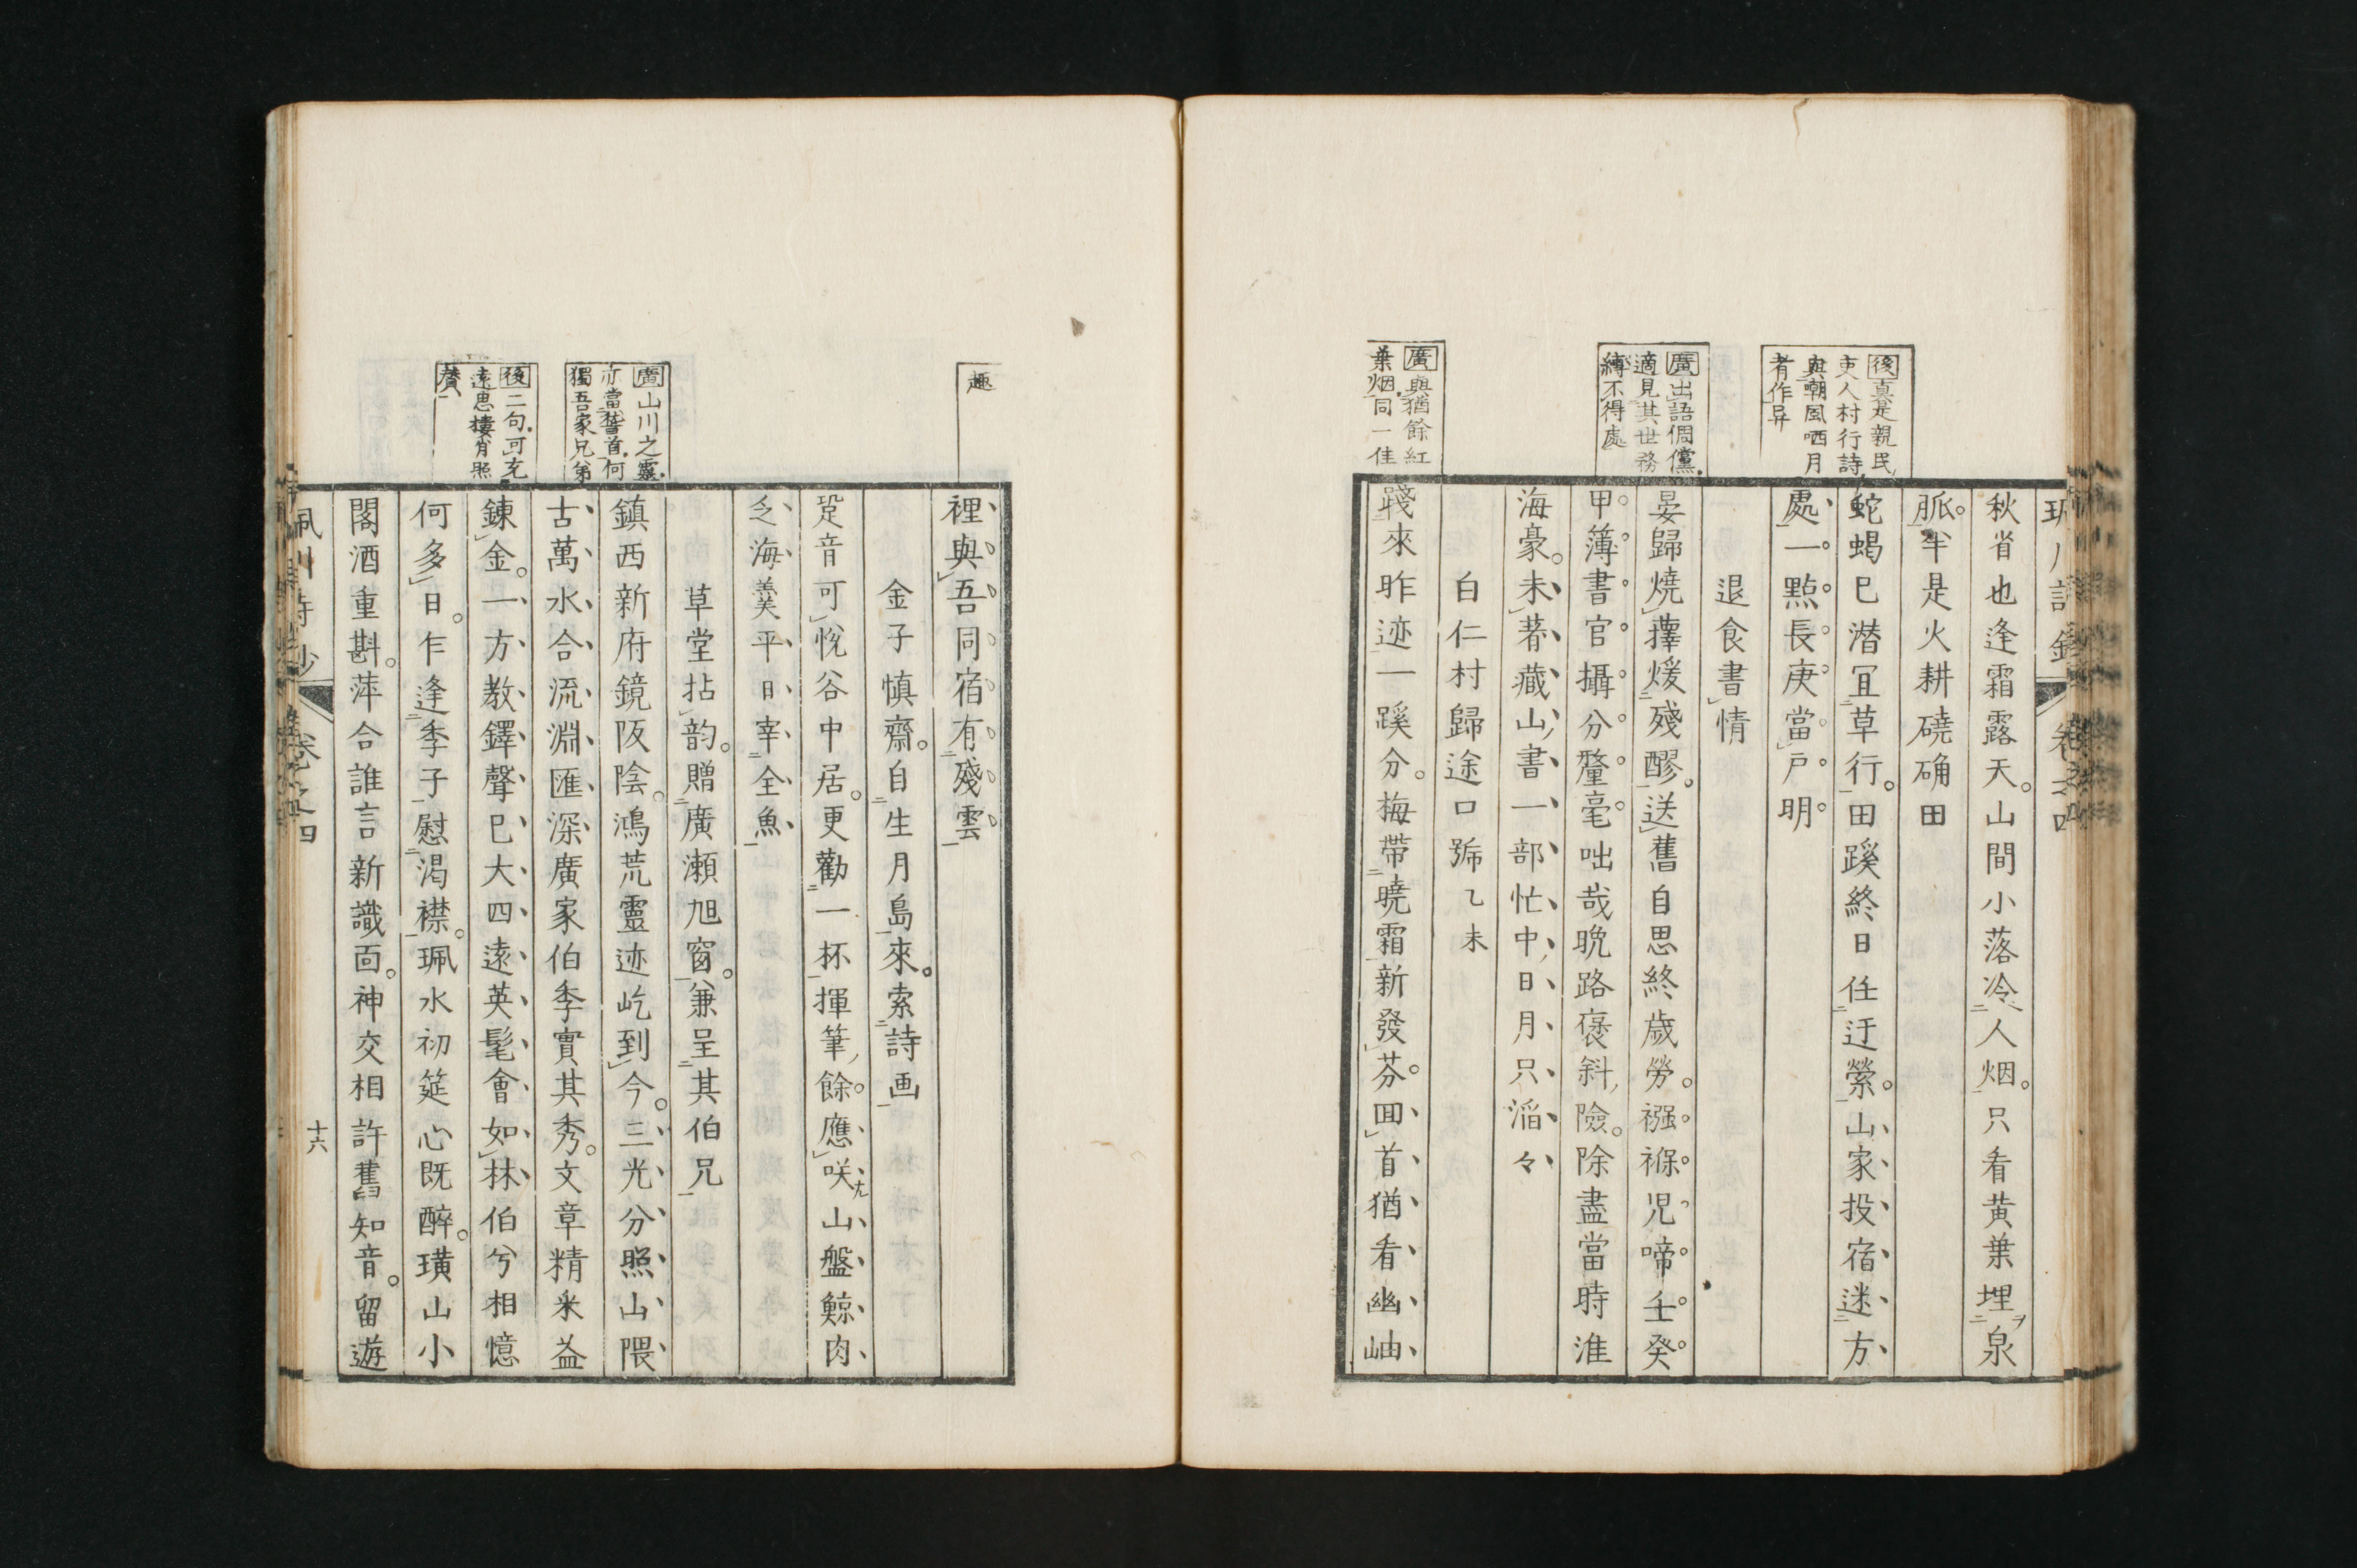 後真是親民
吏人村行詩
與嘲風哂月
者作异
廣出語倜儻
適見其世務
縛不得處
廣與猶餘紅
葉烟同一佳
秋省也逢霜露天山間小落冷人烟只看黄葉埋泉
脈半是火耕磽确田
蛇蝎已潜冝草行田蹊終日任迂縈山家投宿迷方
處一點長庚當戶明
退食書情
晏歸燒𰓼煖殘醪送舊自思終歲勞襁褓児啼壬癸
甲簿書官攝分釐毫咄哉晩路褒斜險除盡當時淮
海豪未著藏山書一部忙中日月只滔々
白仁村歸途口號乙未
踐來昨迹一蹊分梅帶曉霜新發芬回首猶看幽岫
趣
廣山川之靈
亦當稽首何
獨吾家兄弟
後二句可充
遠思樓肖照
贊
裡與吾同宿有殘雲
金子慎齋自生月島來索詩画
跫音可悅谷中居更勸一杯揮筆餘應咲山盤鯨肉
乏海羹平日宰全魚
草堂拈韵贈廣瀬旭窗兼呈其伯兄
鎮西新府鏡阪陰鴻荒靈迹屹到今三光分照山隈
古萬水合流淵匯深廣家伯季實其秀文章精米益
鍊金一方教鐸聲已大四遠英髦會如林伯兮相憶
何多日乍逢季子慰渇襟珮水初筵心既醉璜山小
閣酒重斟萍合誰言新識面神交相許舊知音留遊
珮川詩鈔 卷之四 十六